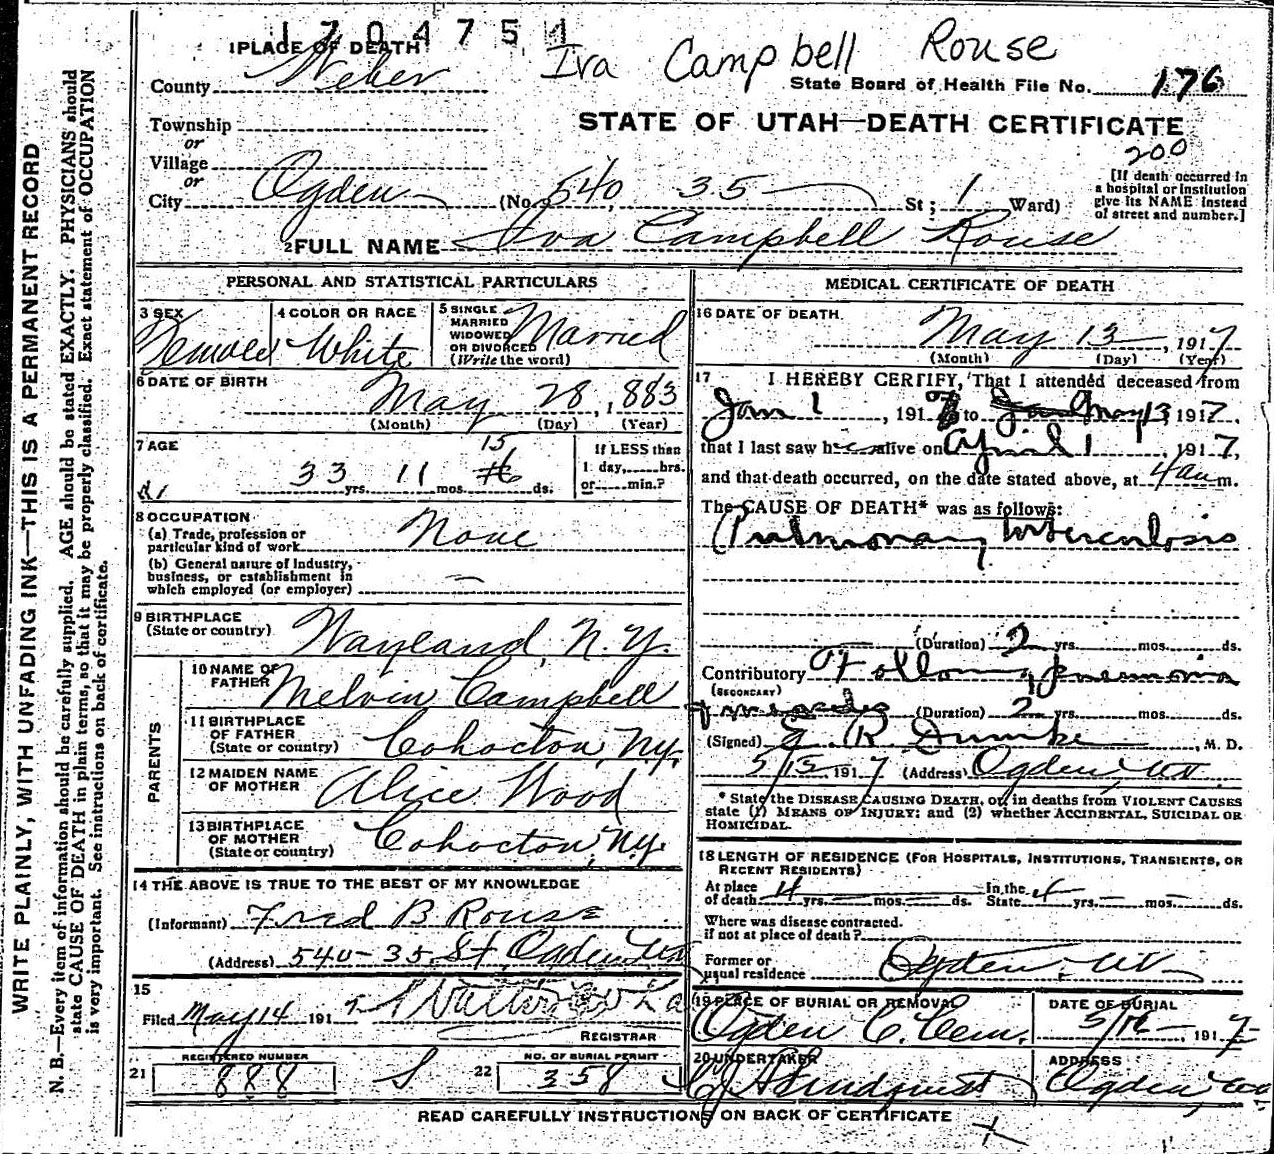 1704754
1 PLACE OF DEATH
Iva Campbell Rouse
County Weber
State Board of Health File No. 176
Township
or
STATE OF UTAH—DEATH CERTIFICATE
200
Village
or
City Ogden (No. 540, 35 St; 1 Ward)
[If death occurred in
a hospital or institution
give its NAME instead
of street and number.]
2 FULL NAME Iva Campbell Rouse
PERSONAL AND STATISTICAL PARTICULARS
3 SEX
Female
4 COLOR OR RACE
White
5 SINGLE
MARRIED
WIDOWED
OR DIVORCED
(Write the word)
Married
6 DATE OF BIRTH
May 28, 1883
(Month) (Day) (Year)
7 AGE
33 yrs. 11 mos. 15 ds.
If LESS than
1 day,......hrs.
or......min.?
8 OCCUPATION
(a) Trade, profession or
particular kind of work None
(b) General nature of Industry,
business, or establishment in
which employed (or employer) —
9 BIRTHPLACE
(State or country) Wayland, N.Y.
PARENTS
10 NAME OF
FATHER Melvin Campbell
11 BIRTHPLACE
OF FATHER
(State or country) Cohocton, N.y.
12 MAIDEN NAME
OF MOTHER Alice Wood
13 BIRTHPLACE
OF MOTHER
(State or country) Cohocton, N.y.
14 THE ABOVE IS TRUE TO THE BEST OF MY KNOWLEDGE
(Informant) Fred B Rouse
(Address) 540-35 St, Ogden
15
Filed May 14 191
REGISTRAR
21 REGISTERED NUMBER
888
22 NO. OF BURIAL PERMIT
358
MEDICAL CERTIFICATE OF DEATH
16 DATE OF DEATH
May 13, 1917
(Month) (Day) (Year)
17 I HEREBY CERTIFY, That I attended deceased from
Jan 1, 1917 to May 13, 1917,
that I last saw her alive on April 1, 1917,
and that death occurred, on the date stated above, at 4 am.
The CAUSE OF DEATH* was as follows:
Pulmonary tuberculosis
(Duration) 2 yrs.......mos.......ds.
Contributory Following pneumonia
(SECONDARY)
+ measles (Duration) 2 yrs.......mos.......ds.
(Signed) R. Dumke, M. D.
1917 (Address) Ogden, Ut
* State the DISEASE CAUSING DEATH, or, in deaths from VIOLENT CAUSES
state (1) MEANS OF INJURY: and (2) whether ACCIDENTAL, SUICIDAL OR
HOMICIDAL.
18 LENGTH OF RESIDENCE (FOR HOSPITALS, INSTITUTIONS, TRANSIENTS, OR
RECENT RESIDENTS)
At place
of death 4 yrs. — mos. — ds.
In the
State 4 yrs. — mos. — ds.
Where was disease contracted.
if not at place of death?
Former or
usual residence Ogden, Ut
19 PLACE OF BURIAL OR REMOVAL
Ogden C. Cem.
DATE OF BURIAL
5/16, 1917
20 UNDERTAKER
ADDRESS
Ogden
READ CAREFULLY INSTRUCTIONS ON BACK OF CERTIFICATE
WRITE PLAINLY, WITH UNFADING INK—THIS IS A PERMANENT RECORD
N. B.—Every item of information should be carefully supplied. AGE should be stated EXACTLY. PHYSICIANS should
state CAUSE OF DEATH in plain terms, so that it may be properly classified. Exact statement of OCCUPATION
is very important. See instructions on back of certificate.